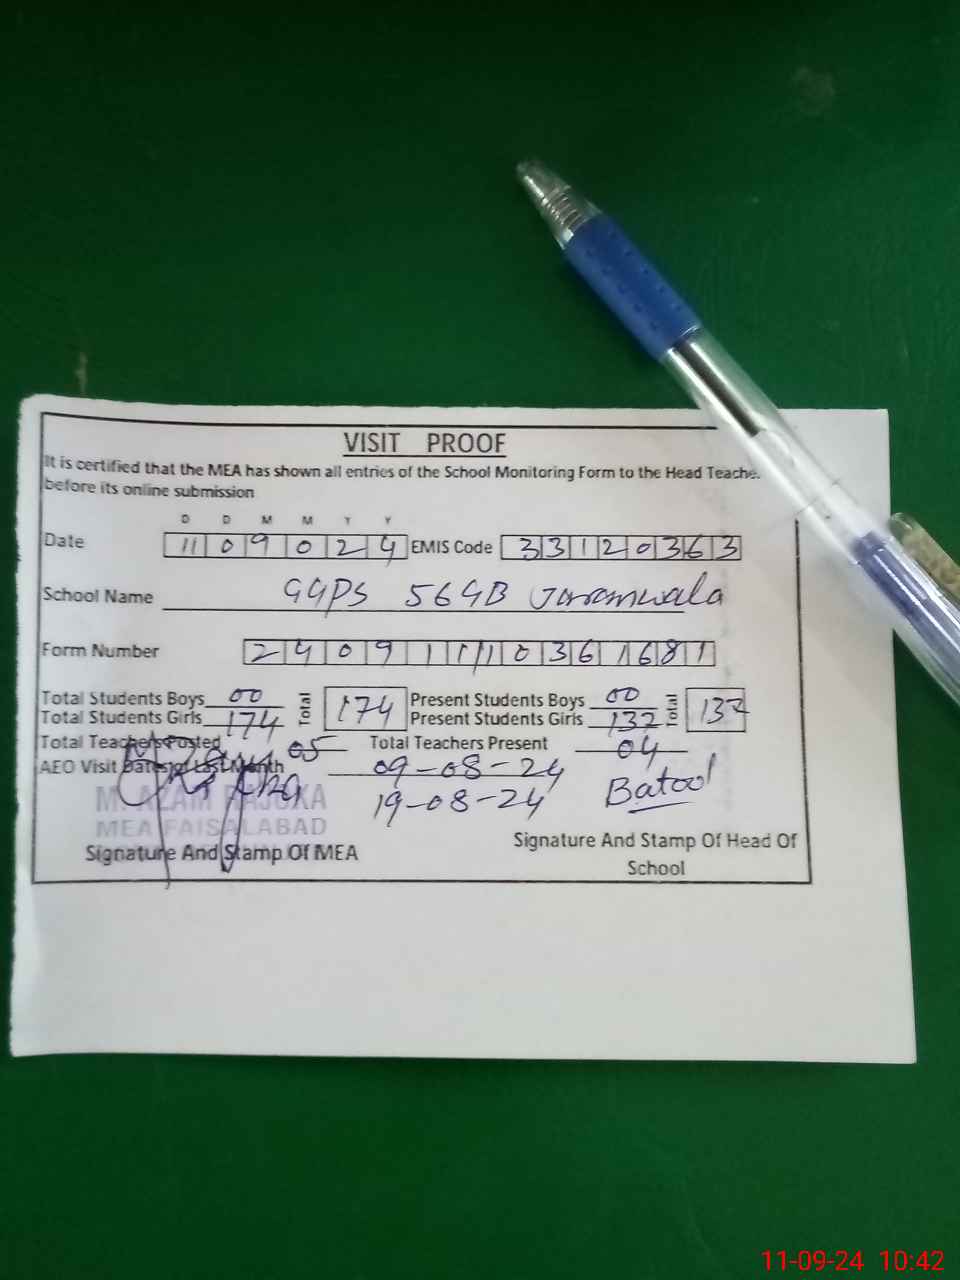 VISIT PROOF
It is certified that the MEA has shown all entries of the School Monitoring Form to the Head Teache
before its online submission
D D M M Y Y
Date 11 0 9 0 2 4 EMIS Code 3 3 1 2 0 3 6 3
School Name GGPS 56GB Jaranwala
Form Number 2 4 0 9 1 1 1 0 3 6 1 6 8 1
Total Students Boys 00 Total 174 Present Students Boys 00 Total 132
Total Students Girls 174 Present Students Girls 132
Total Teachers Posted 05 Total Teachers Present 04
AEO Visit Dates of Last Month 09-08-24
19-08-24 Batool
M. AZAM RAJOKA
MEA FAISALABAD
Signature And Stamp Of MEA Signature And Stamp Of Head Of
School
11-09-24 10:42